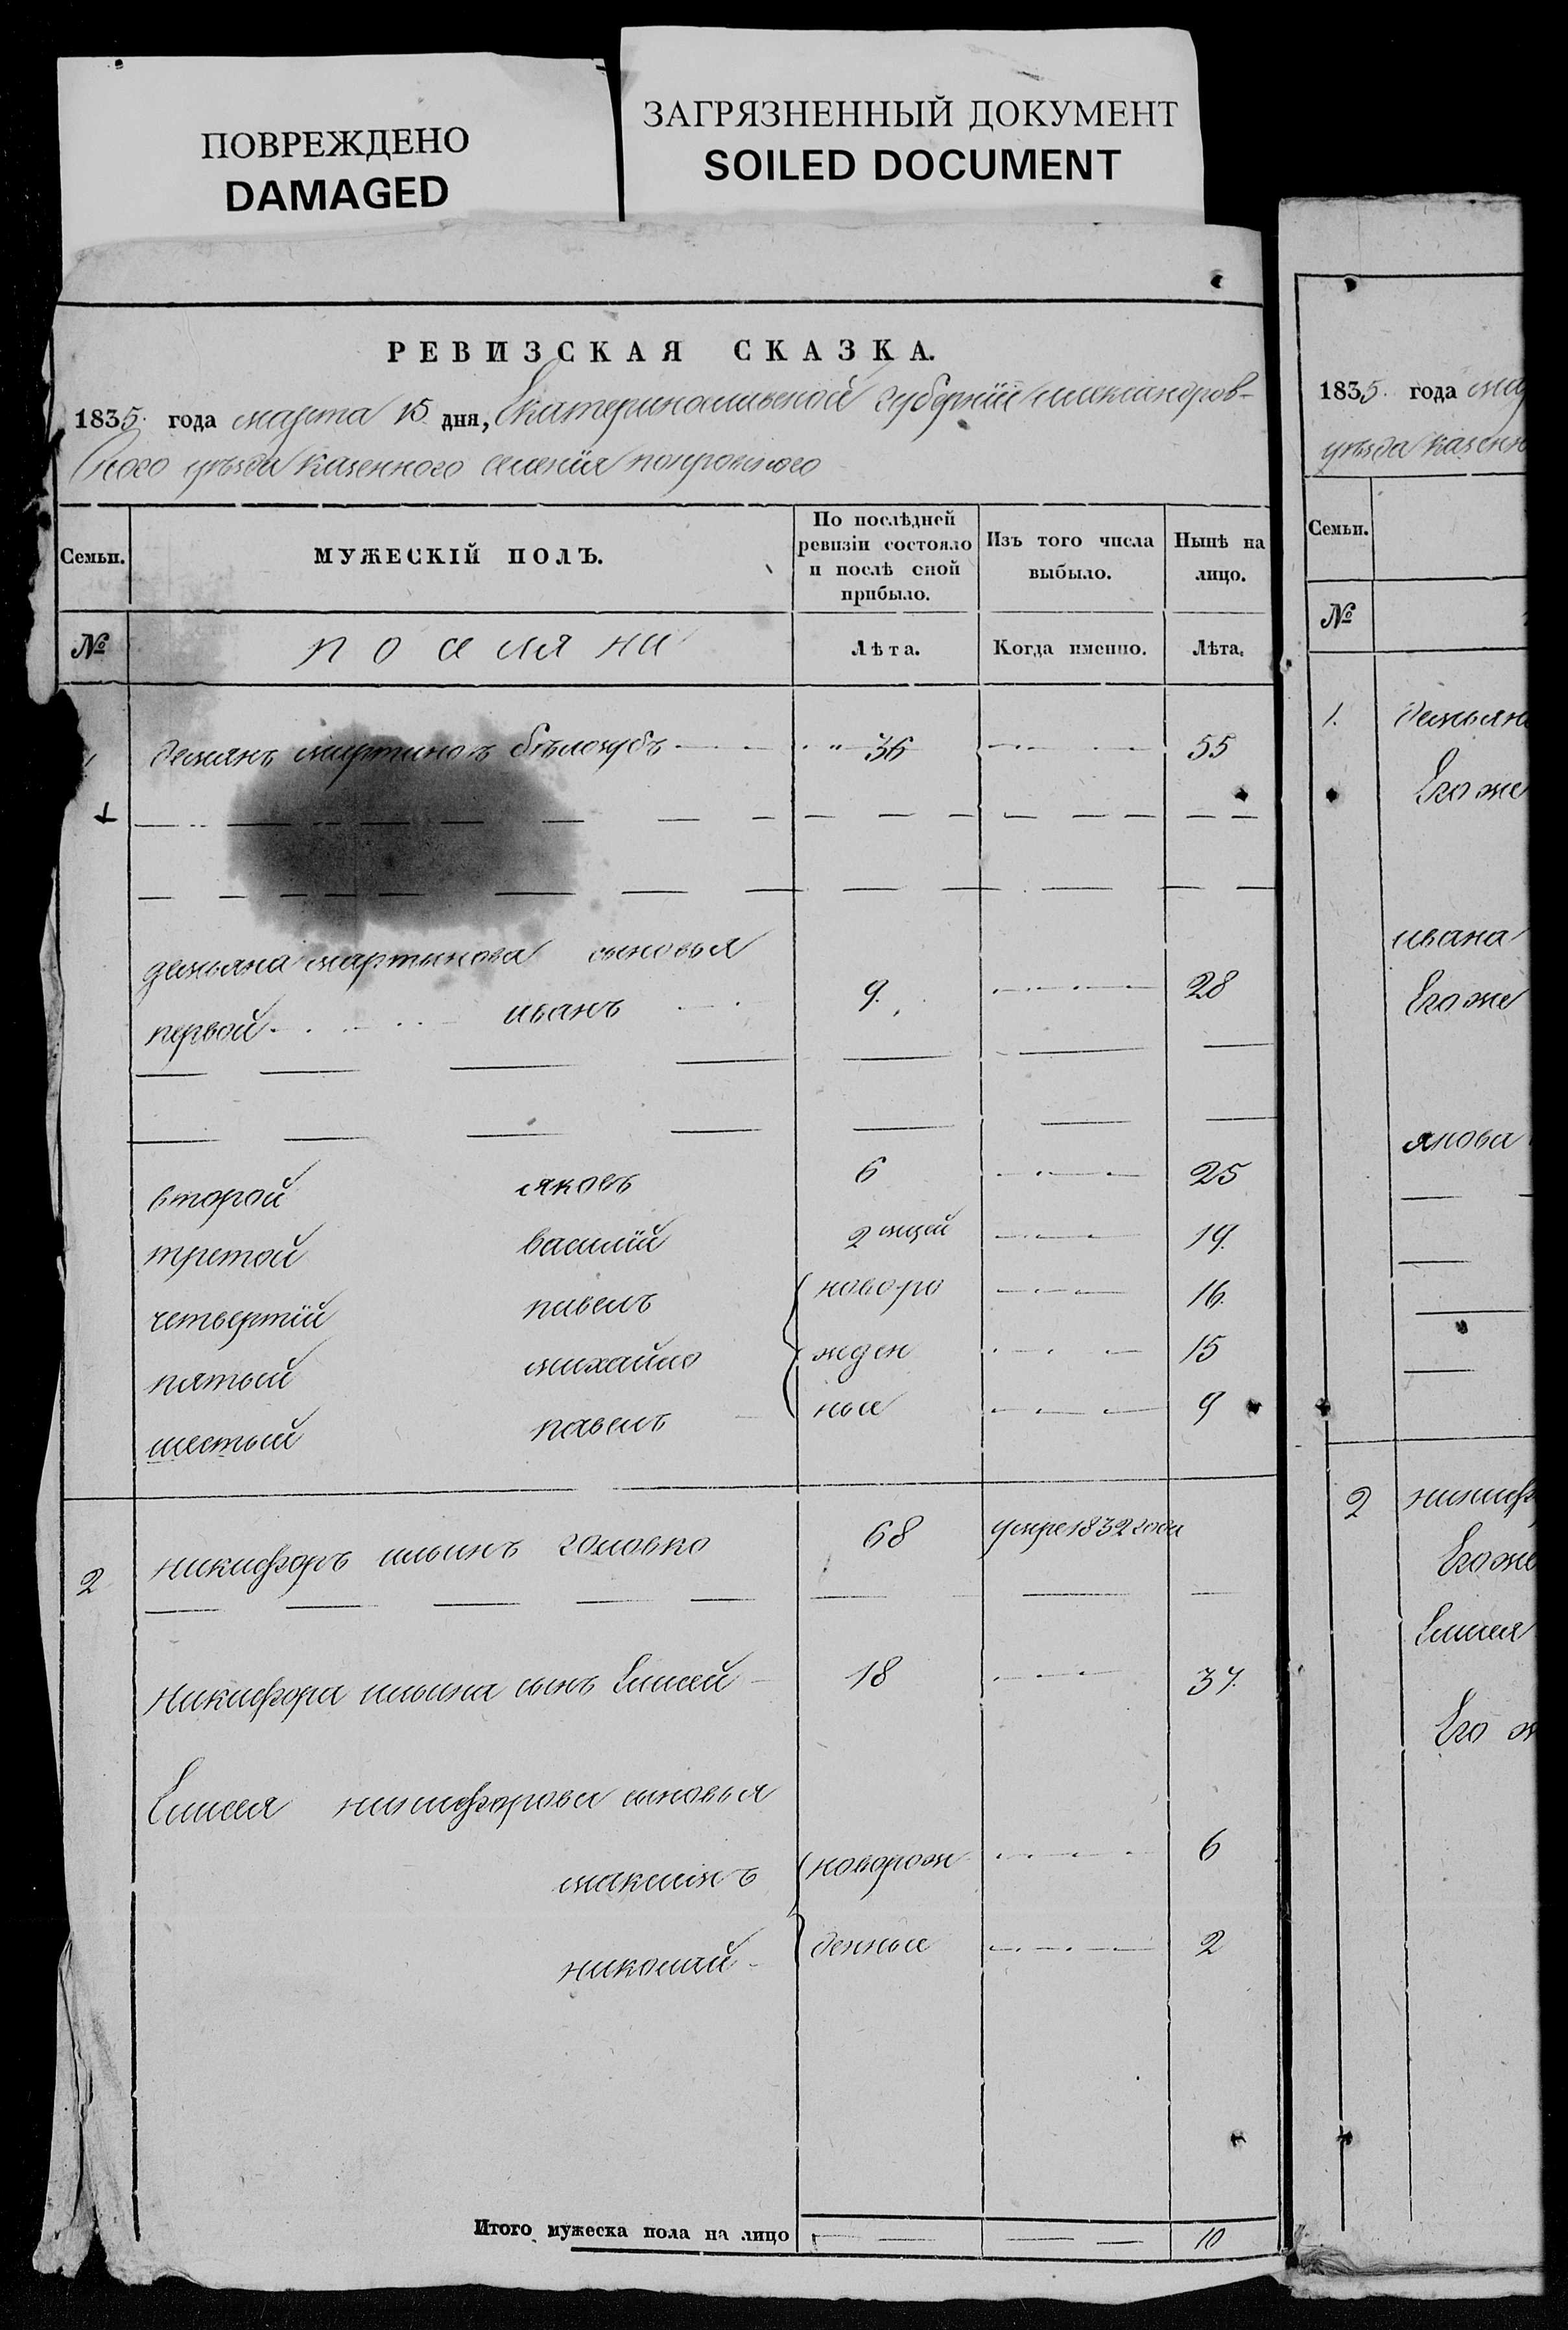 ПОВРЕЖДЕНО
DAMAGED
ЗАГРЯЗНЕННЫЙ ДОКУМЕНТ
SOILED DOCUMENT
РЕВИЗСКАЯ СКАЗКА.
1835 года марта 15 дня, Екатеринославской губерніи Александров-
ского уѣзда казенного селенія покровского
Семьи.
МУЖЕСКІЙ ПОЛЪ.
По послѣдней ревизіи состояло и послѣ оной прибыло.
Изъ того числа выбыло.
Ныне на лицо.
№
поселяни
Лѣта.
Когда именно.
Лѣта.
1 демянъ мартиновъ бѣлозубъ 36 55
демьяна мартинова сыновья
первой иванъ 9. 28
второй яковъ 6 25
третой василій 2 мцей 19.
четвертій павелъ новоро 16.
пятый михайло жден 15
шестый павелъ ные 9
2 никифоръ ильинъ головко 68 умре 1832 года
никифора ильина сынъ Елисей 18 37.
Елисея никифорова сыновья
максимъ новорож 6
николай денные 2
Итого мужеска пола на лицо 10
1835. года мар
уѣзда казенн
Семьи.
№
1. демьяна
Его же
ивана
Его же
якова
2 никифо
Его же
Елисея
Его ж